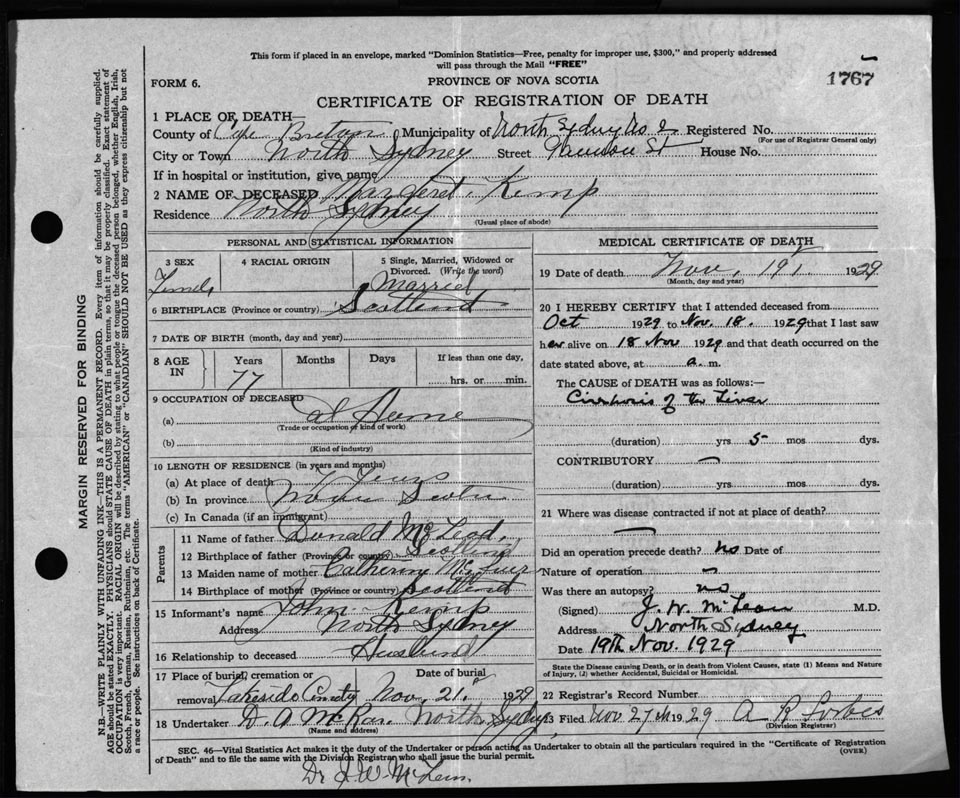 This form if placed in an envelope, marked "Dominion Statistics—Free, penalty for improper use, $300," and properly addressed
will pass through the Mail "FREE"
1767
FORM 6.
PROVINCE OF NOVA SCOTIA
CERTIFICATE OF REGISTRATION OF DEATH
1 PLACE OF DEATH
County of Cape Breton Municipality of North Sydney No 2 Registered No.
(For use of Registrar General only)
City or Town North Sydney Street St House No.
If in hospital or institution, give name
2 NAME OF DECEASED Margaret Kemp
Residence North Sydney
(Usual place of abode)
PERSONAL AND STATISTICAL INFORMATION
3 SEX 4 RACIAL ORIGIN 5 Single, Married, Widowed or
Divorced. (Write the word)
Female Married
6 BIRTHPLACE (Province or country) Scotland
7 DATE OF BIRTH (month, day and year)
8 AGE IN Years Months Days If less than one day,
77 hrs. or min.
9 OCCUPATION OF DECEASED
(a) at Home
(Trade or occupation or kind of work)
(b)
(Kind of industry)
10 LENGTH OF RESIDENCE (in years and months)
(a) At place of death
(b) In province Nova Scotia
(c) In Canada (if an immigrant)
Parents
11 Name of father Donald McLeod
12 Birthplace of father (Province or country) Scotland
13 Maiden name of mother Catherine
14 Birthplace of mother (Province or country) Scotland
15 Informant's name John Kemp
Address North Sydney
16 Relationship to deceased Husband
17 Place of burial, cremation or Date of burial
removal Lakeside Cemetery Nov. 21st 1929
18 Undertaker D. A. McRae. North Sydney
(Name and address)
MEDICAL CERTIFICATE OF DEATH
19 Date of death Nov. 19th 1929
(Month, day and year)
20 I HEREBY CERTIFY that I attended deceased from
Oct 1929 to Nov. 18. 1929 that I last saw
her alive on 18 Nov 1929 and that death occurred on the
date stated above, at a. m.
The CAUSE OF DEATH was as follows:—
Cirrhosis of the Liver
(duration) yrs 5 mos dys.
CONTRIBUTORY —
(duration) yrs. mos. dys.
21 Where was disease contracted if not at place of death?
—
Did an operation precede death? no Date of
Nature of operation
Was there an autopsy? no
(Signed) J. W. McLean M.D.
Address North Sydney
Date 19th Nov. 1929
State the Disease causing Death, or in death from Violent Causes, state (1) Means and Nature
of Injury, (2) whether Accidental, Suicidal or Homicidal.
22 Registrar's Record Number
23 Filed Nov 27th 1929 A R Forbes
(Division Registrar)
SEC. 46—Vital Statistics Act makes it the duty of the Undertaker or person acting as Undertaker to obtain all the particulars required in the "Certificate of Registration
of Death" and to file the same with the Division Registrar who shall issue the burial permit.
(OVER)
Dr J. W. McLean.
MARGIN RESERVED FOR BINDING
N.B.—WRITE PLAINLY WITH UNFADING INK—THIS IS A PERMANENT RECORD. Every item of information should be carefully supplied.
AGE should be stated EXACTLY. PHYSICIANS should STATE CAUSE OF DEATH in plain terms, so that it may be properly classified. Exact statement of
OCCUPATION is very important. RACIAL ORIGIN will be described by stating to what people or tongue the deceased person belonged, whether English, Irish,
Scotch, French, German, Russian, Ruthenian, etc. The terms "AMERICAN" or "CANADIAN" SHOULD NOT BE USED as they express citizenship but not
a race or people. See instructions on back of Certificate.